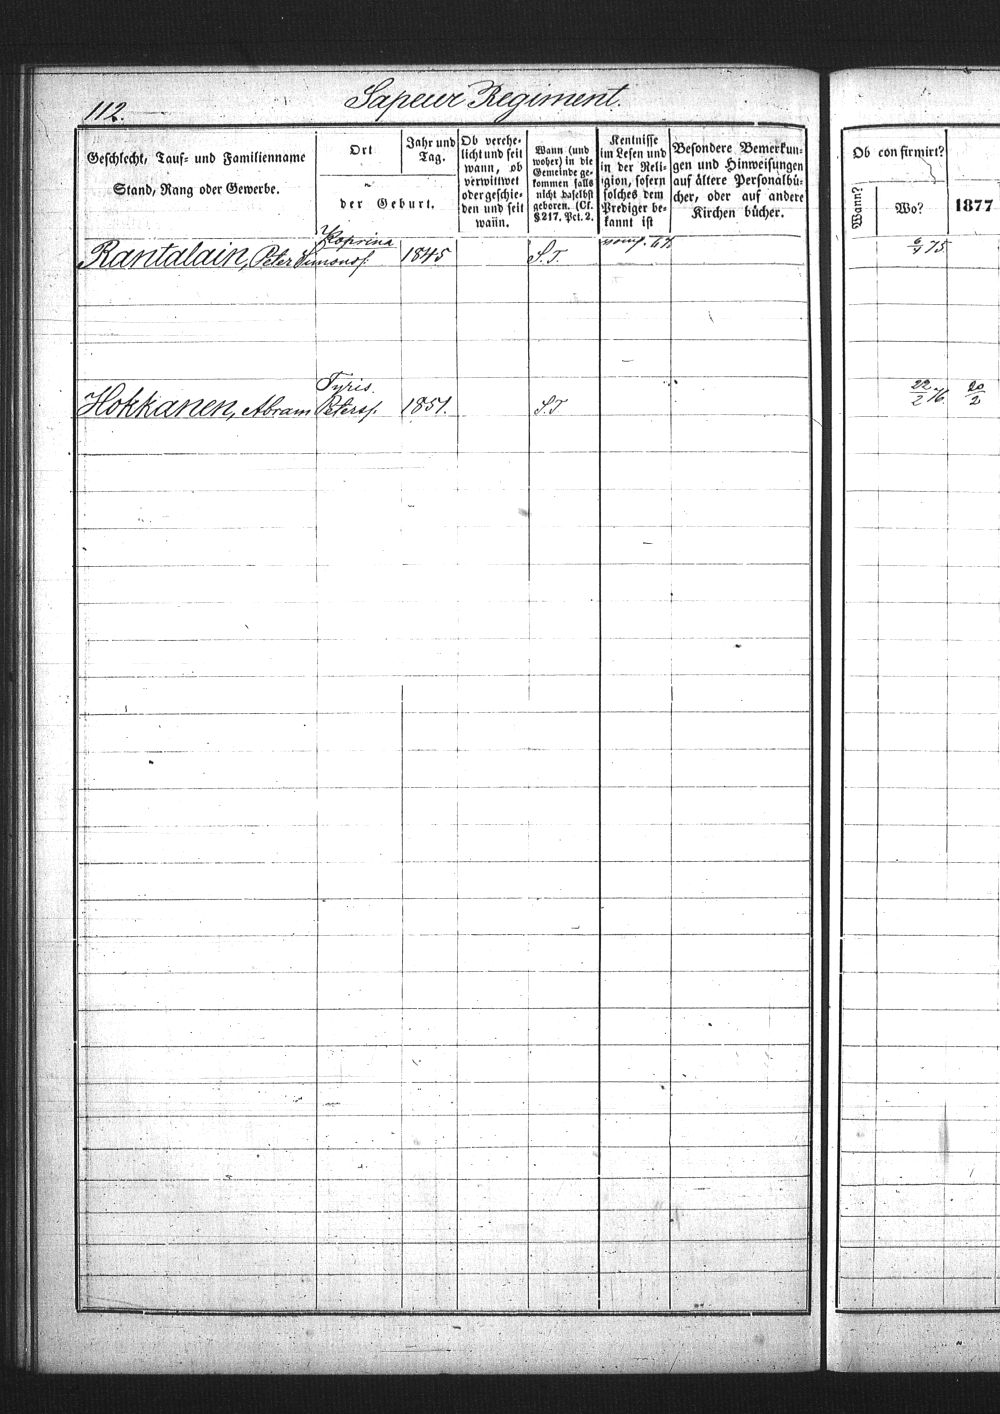 112.
Sapeur Regiment.
Geschlecht, Tauf- und Familienname
Stand, Rang oder Gewerbe.
Ort
der Geburt.
Jahr und
Tag.
Ob verehe-
licht und seit
wann, ob
verwittwet
oder geschie-
den und seit
wann.
Wann (und
woher) in die
Gemeinde ge-
kommen falls
nicht daselbst
geboren. (Cf.
§217, Pct. 2.
Kentnisse
im Lesen und
in der Reli-
gion, sofern
solches dem
Prediger be-
kannt ist
Besondere Bemerkun-
gen und Hinweisungen
auf ältere Personalbü-
cher, oder auf andere
Kirchen bücher.
Ob confirmirt?
Wann?
Wo?
1877
Koprina
Rantalain, Peter Simonsf. 1845 S.T. 6/4 75
Tyris.
Hokkanen, Abram Petersf. 1851. S.T 22/2 76. 20/2